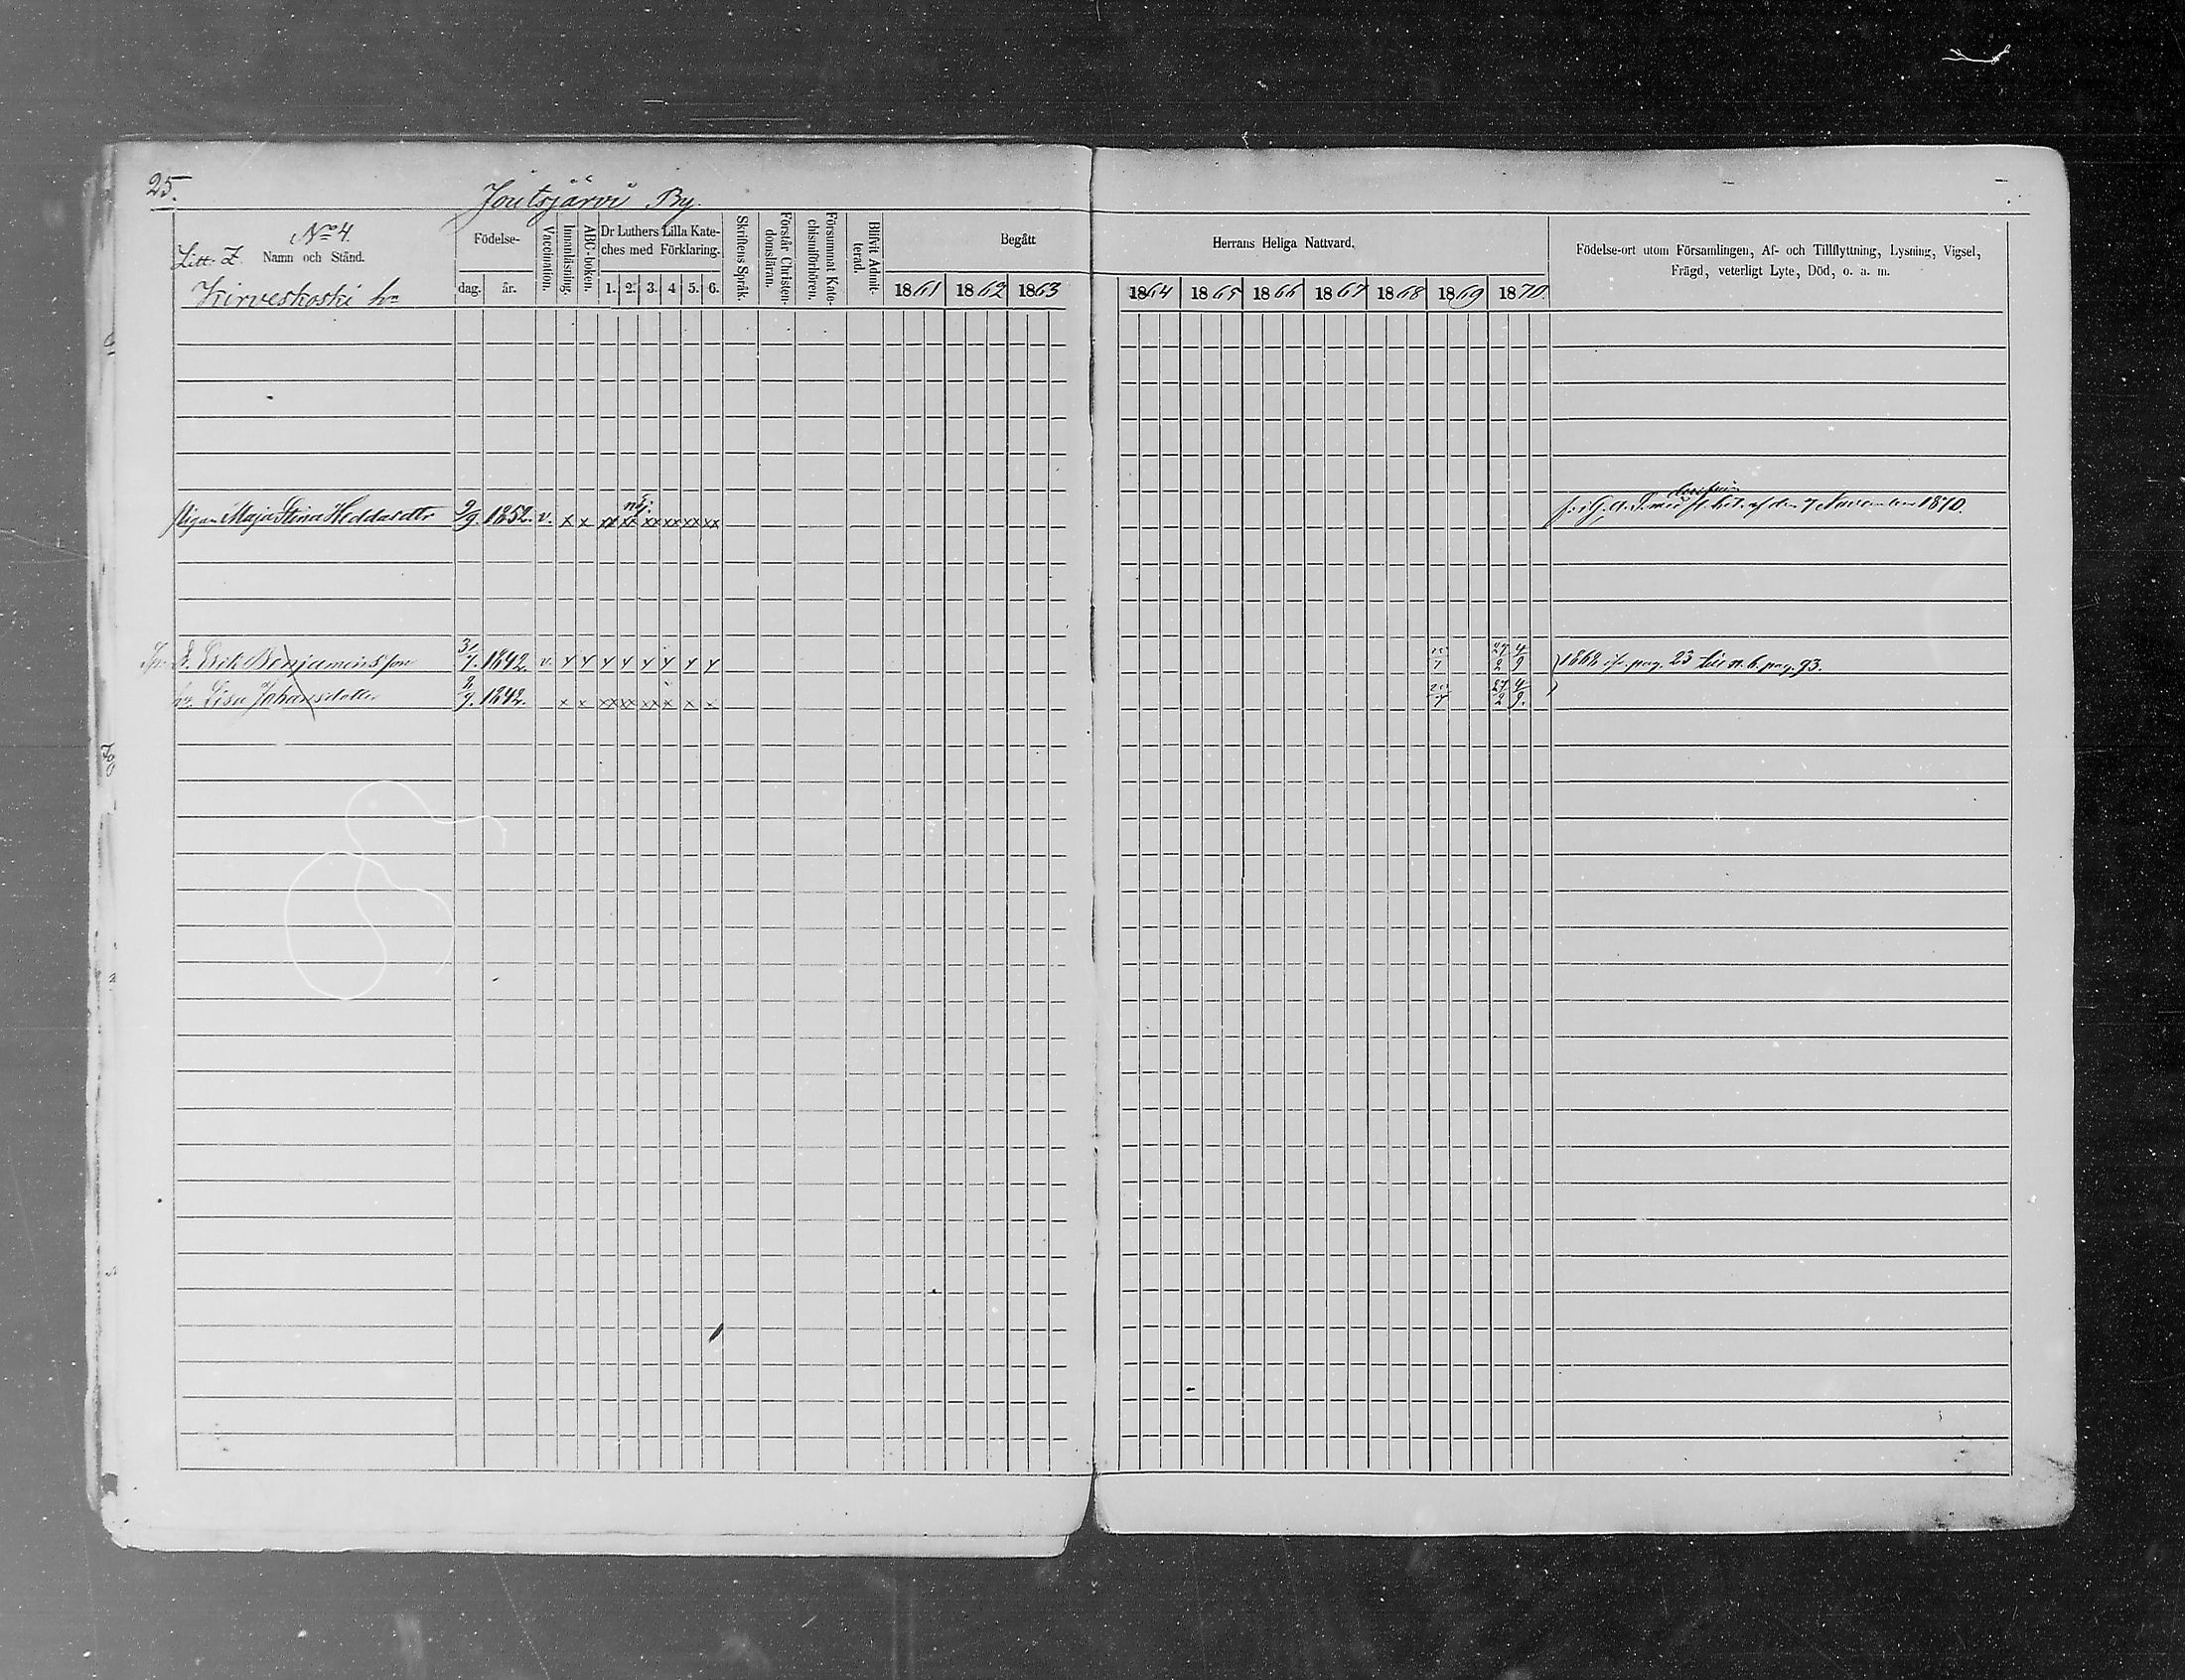 25.
Joutsjärvi By.
No 4.
Litt. Z. Namn och Stånd.
Kirveskoski hn
Födelse-
dag. år.
Vaccination.
Innanläsning.
ABC-boken.
Dr Luthers Lilla Kate-
ches med Förklaring.
1. 2. 3. 4 5. 6.
Skriftens Språk.
Förstår Christen-
domsläran.
Försummat Kate-
chismiförhören.
Blifvit Admit-
terad.
Begått Herrans Heliga Nattvard.
1861 1862 1863 1864 1865 1866 1867 1868 1869 1870.
Födelse-ort utom Församlingen, Af- och Tillflyttning, Lysning, Vigsel,
Frägd, veterligt Lyte, Död, o. a. m.
nöj.
Pigan Maja Stina Heddasdtr 9/9. 1852. v. x x xx xx xx xx xx xx af den 7 November 1870.
Erik Benjamins son 31/7. 1842. v. 27/2 4/9 1868 pag. 23 n. 6. pag. 93.
Lisa Johansdotter 2/9. 1842. x x xx xx xx x x x 27/2 4/9.